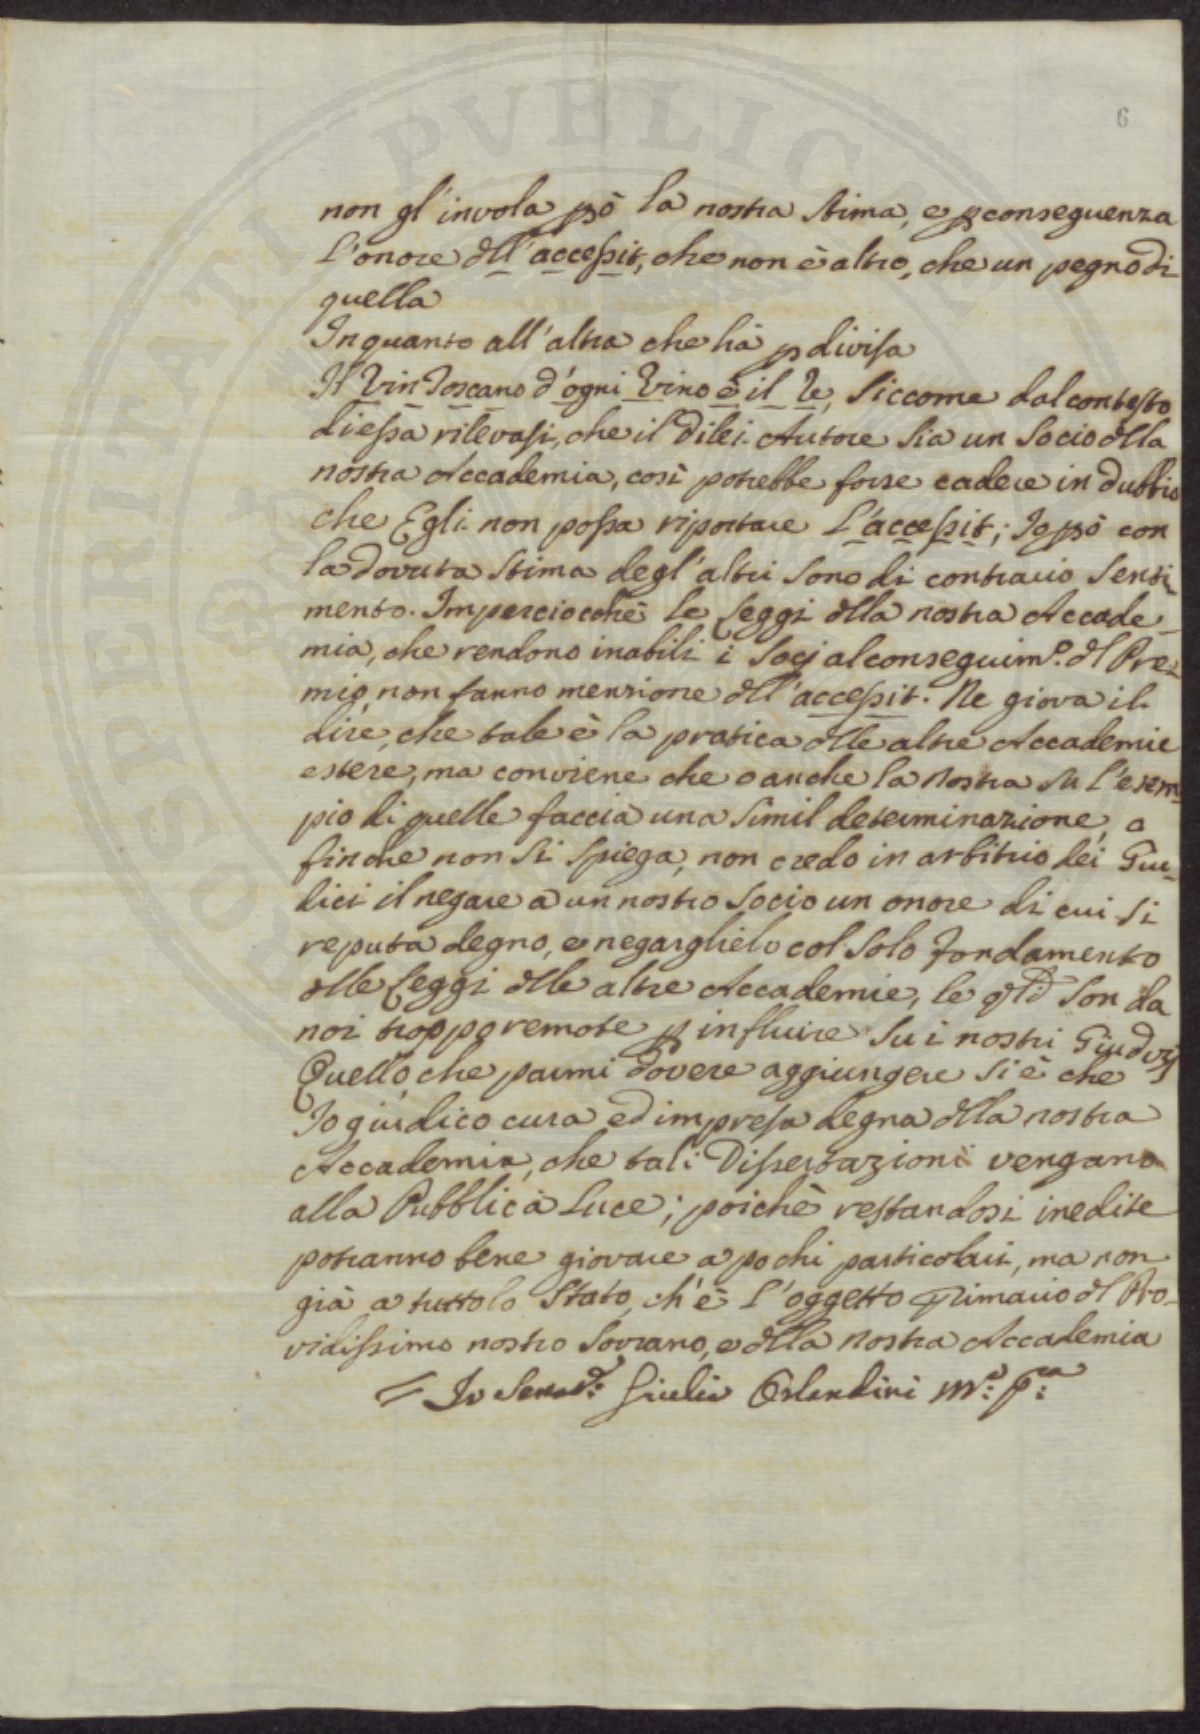 6
non gl'invola però la nostra stima, e p conseguenza
l'onore dll'accessit, che non è altro, che un pegno di
quella
In quanto all'altra che hà p divisa
Il Vin Toscano d'ogni Vino è il Re, siccome dal contesto
di essa rilevasi, che il di lei Autore sia un Socio dlla
nostra Accademia, così potrebbe forse cadere in dubbio
che Egli non possa riportare l'accessit; Io pò con
la dovuta stima degl'altri sono di contrario senti
mento. Imperciocchè le Leggi dlla nostra Accade-
mia, che rendono inabili i Socj al conseguim.º dl Pre-
mio, non fanno menzione dll'accessit. Ne giova il
dire, che tale è la pratica dlle altre Accademie
estere, ma conviene che o anche la nostra su l'esem-
pio di quelle faccia una simil determinazione, o
finche non si spiega, non credo in arbitrio dei Giu-
dici il negare a un nostro Socio un onore di cui si
reputa degno, e negarglielo col solo fondamento
dlle Leggi dlle altre Accademie, le qli son da
noi troppo remote p influire su i nostri Giudizj
Quello, che parmi dovere aggiungere si è che
Io giudico cura ed impresa degna dlla nostra
Accademia, che tali Dissertazioni vengano
alla Pubblica Luce; poichè restandosi inedite
potranno bene giovare a pochi particolari, ma non
già a tutto lo Stato, ch'è l'oggetto Primario dl Pro-
vidissimo nostro Sovrano, e dlla nostra Accademia
= Io Senat.e: Giulio Orlandini m.o: p.ria: